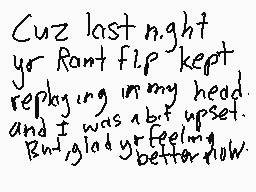 Cuz last night
yr Rant flip kept
replaying in my head.
and I was a bit upset.
But, glad yr feeling
better now.